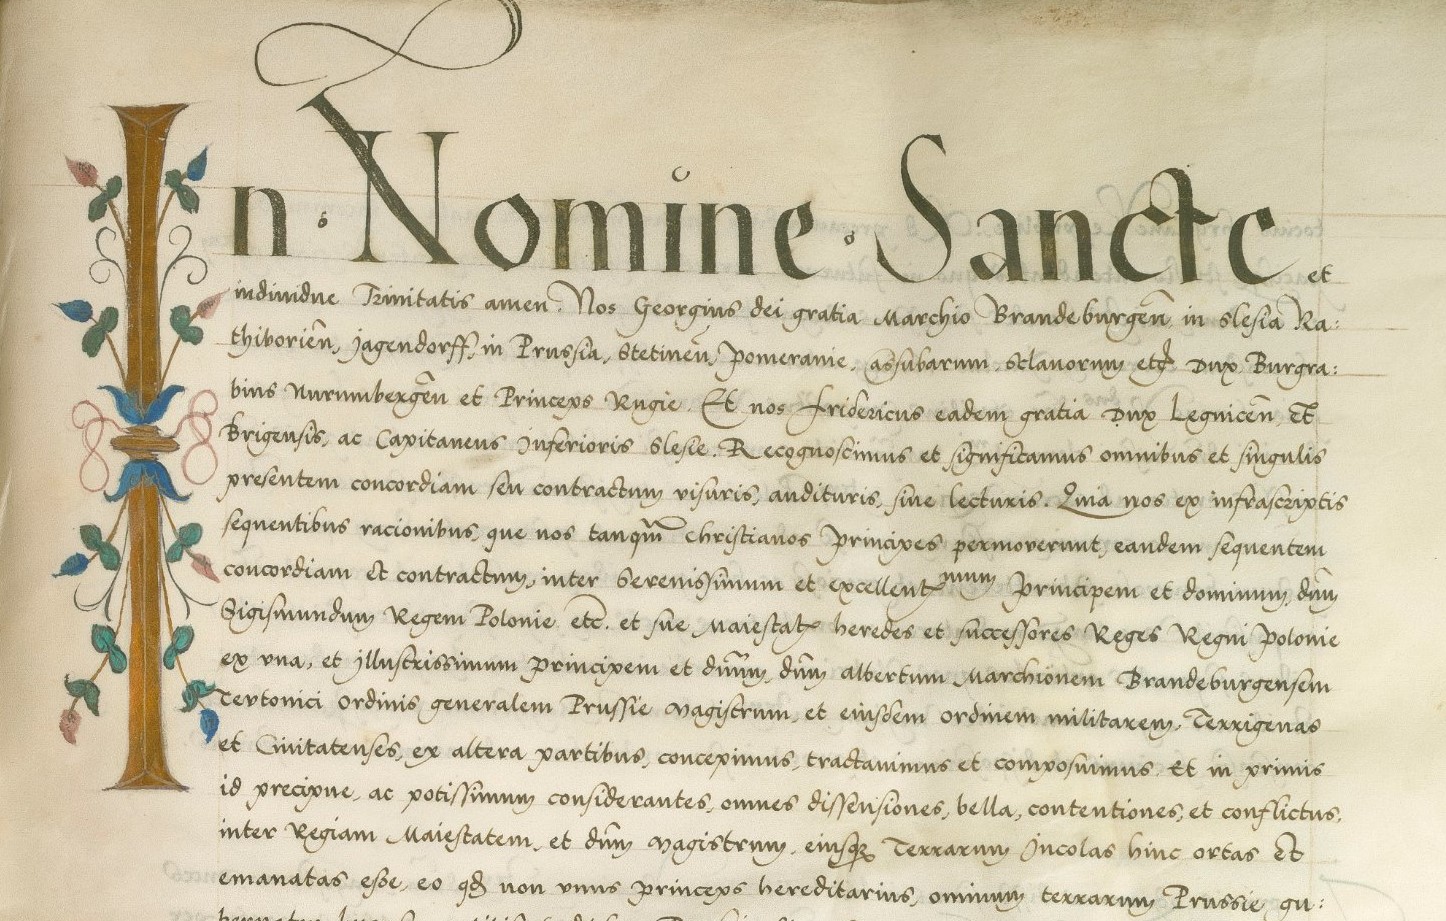 In Nomine Sancte et
indiuidue Trinitatis amen. Nos Georgius dei gratia Marchio Brandeburgeñ in Slesia Ra:
thiborieñ, Jagendorff, in Prussia, Stetineñ, Pomeranie, Cassubarum, Sclauorum etc Dux Burgra:
bius Nurumbergeñ et Princeps Rugie. Et nos fridericus eadem gratia Dux Legniceñ, et
Brigensis, ac Capitaneus Inferioris Slesie. Recognoscimus et significamus omnibus et singulis
presentem concordiam seu contractum visuris, audituris, siue lecturis. Quia nos ex infrascriptis
sequentibus racionibus, que nos tanqm̃ Christianos Principes permouerunt, eandem sequentem
concordiam et contractum, inter Serenissimum et excellent mum Principem et dominum, dñm
Sigismundum Regem Polonie etc. et sue Maiestatꝭ heredes et successores Reges Regni Polonie
ex vna, et Illustrissimum principem et dñum, dñm albertum Marchionem Brandeburgensem
Teutonici Ordinis generalem Prussie Magistrum, et eiusdem ordinem militarem, Terrigenas
et Ciuitatenses, ex altera partibus, concepimus, tractauimus et composuimus. Et in primis
id precipue, ac potissimum considerantes, omnes dissensiones, bella, contentiones, et conflictus,
inter Regiam Maiestatem, et dñm Magistrum, eiusqꝫ Terrarum Incolas hinc ortas et
emanatas esse, eo qđ non vnus princeps hereditarius, omnium terrarum Prussie gu: